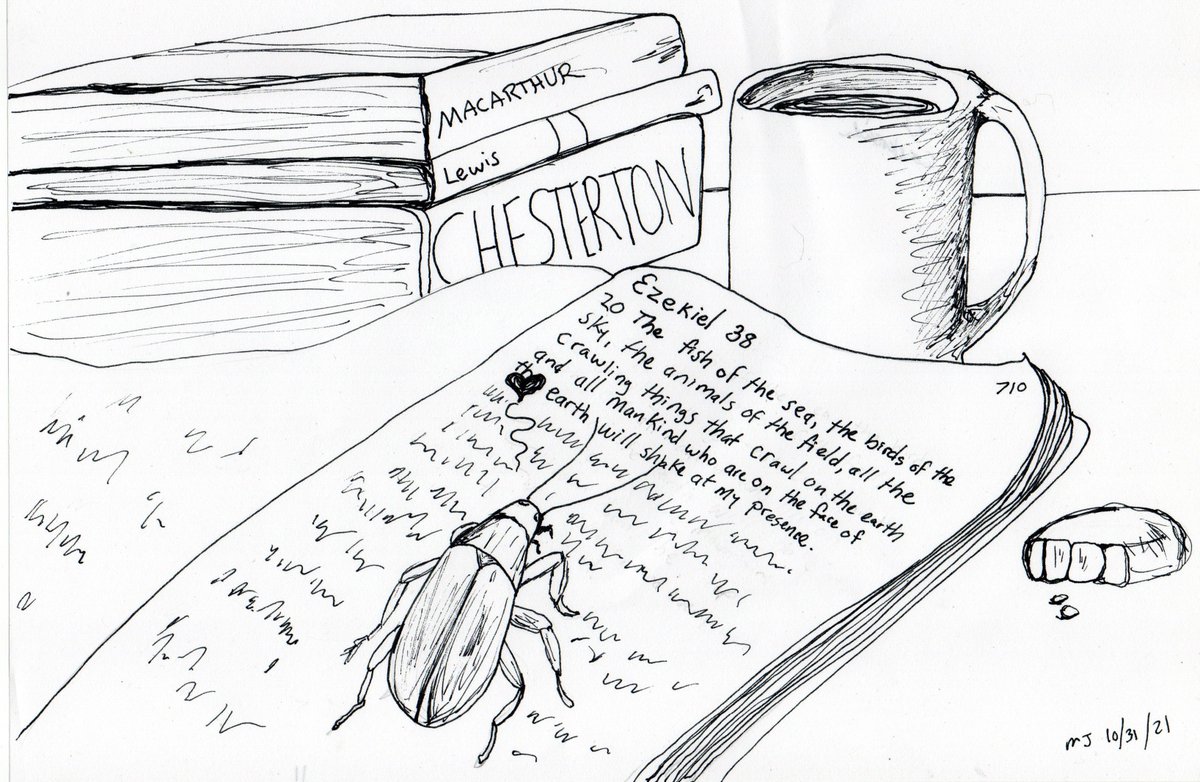 MACARTHUR
Lewis
CHESTERTON
Ezekiel 38
20 The fish of the sea, the birds of the
sky, the animals of the field, all the
crawling things that crawl on the earth
and all mankind who are on the face of
the earth will shake at My presence.
710
MJ 10/31/21